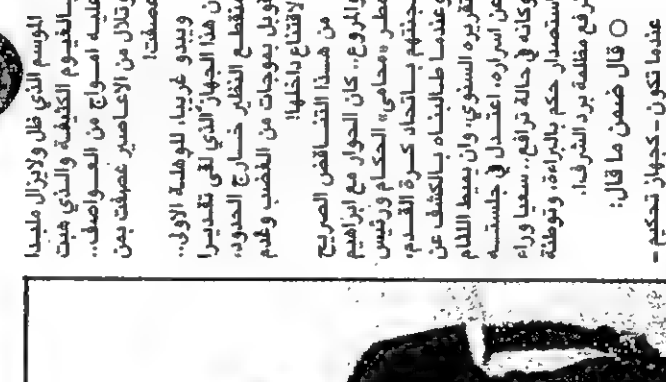 الموسم الذي ظل ولايزال ملبدا
بالغيوم الكثيفة والذي هبت
عليه امواج من العواصف..
وتلال من الاعاصير عصفت بمن
عصفت!
ويبدو غريبا.. للوهلة الاولى..
ان هذا الجهاز الذي لقى تقديرا
منقطع النظير خارج الحدود،
قوبل بموجات من الغضب وعدم
الاقتناع داخلها!
من هذا التناقض الصريح
والمروع.. كان الحوار مع ابراهيم
مطر «محامي» الحكام ورئيس
لجنتهم باتحاد كرة القدم،
وعندما طالبناه بالكشف عن
تقريره السنوي، وان يميط اللثام
عن اسراره، اعتدل في جلسته
وكأنه في حالة ترافع.. سعيا وراء
استصدار حكم بالبراءة، وتوطئة
لرفع مظلمة برد الشرف!.
○ قال ضمن ما قال:
عندما تكون - كجهاز تحكيم -